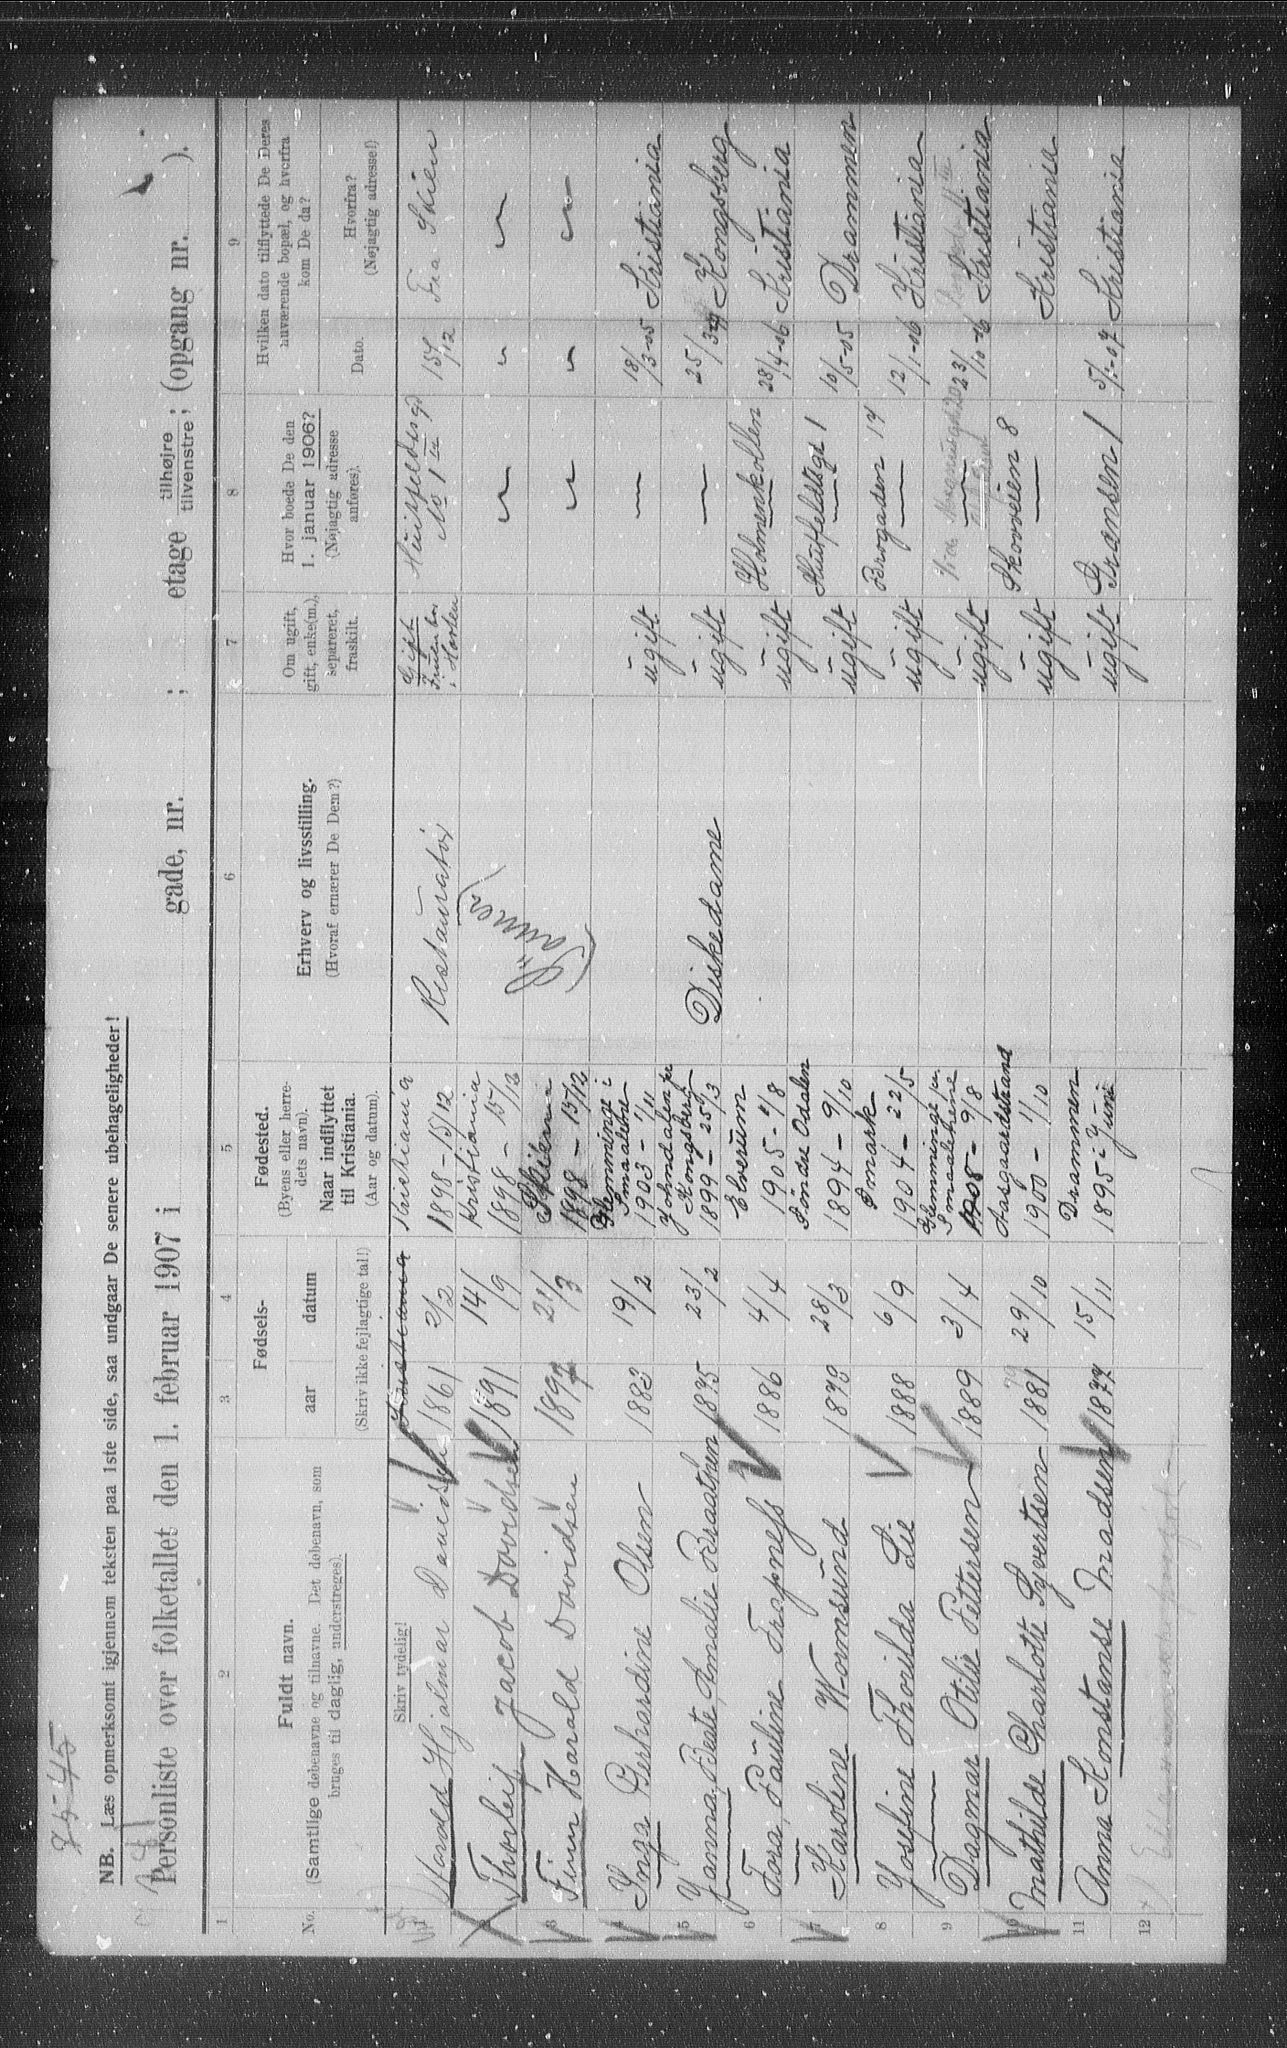 75-45
NB. Læs opmerksomt igjennem teksten paa 1ste side, saa undgaar De senere ubehageligheder!
Personliste over folketallet den 1. februar 1907 i gade, nr. ; etage tilhøjre / tilvenstre ; (opgang nr. ).
1 2 3 4 5 6 7 8 9
No.
Fuldt navn.
(Samtlige døbenavne og tilnavne. Det døbenavn, som
bruges til daglig, understreges).
Skriv tydelig!
Fødsels-
aar datum
(Skriv ikke fejlagtige tal!)
Fødested.
(Byens eller herre-
dets navn).
Naar indflyttet
til Kristiania.
(Aar og datum).
Erhverv og livsstilling.
(Hvoraf ernærer De Dem?)
Om ugift,
gift, enke(m.),
separeret,
fraskilt.
Hvor boede De den
1. januar 1906?
(Nøjagtig adresse
anføres).
Hvilken dato tilflyttede De Deres
nuværende bopæl, og hvorfra
kom De da?
Dato.
Hvorfra?
(Nøjagtig adresse!)
Harold Hjalmar Davidsen 1861 2/2 Kristiania 1898 - 15/12 Restauratör Gift Huitfeldtsgd No 1 III 15/12 Fra Skien
2 Thorleif Jacob Davidsen 1891 14/9 Kristiania 1898 - 15/12 (Sönner) " " "
3 Finn Harald Davidsen 1897 21/3 Skien 1898 - 15/12 " " "
Inga Gerhardine Olsen 1883 19/2 Glemminge i Smaalene 1903 - 1/11 ugift — 18/3-05 Kristiania
5 Janna Beate Amalie Braathen 1875 23/2 Johndalen pr Kongsberg 1899 - 25/3 Diskedame ugift — 25/3 Kongsberg
6 Tora Pauline Trapness 1886 4/4 Elverum 1905 - 1/8 ugift Holmenkollen 28/4-06 Kristiania
7 Karoline Wormsund 1873 28/3 Söndre Odalen 1894 - 9/10 ugift Huitfeldtsgt 1 10/5-05 Drammen
8 Josefine Thorilda Lie 1888 6/9 Ømark 1904 - 22/5 ugift Brogaden 14 12/1-06 Kristiania
9 Dagmar Otilie Pettersen 1889 3/4 Glemminge pr. Smaalenene 1905 - 9/8 ugift — 23/10-06 Kristiania
10 Mathilde Charlotte Syvertsen 1881 29/10 Aasgaardstrand 1900 - 1/10 ugift Skovveien 8 Kristiania
11 Anna Konstanse Madsen 1877 15/11 Drammen 1895 i Juni ugift Grænsen 1 5/1-07 Kristiania
12